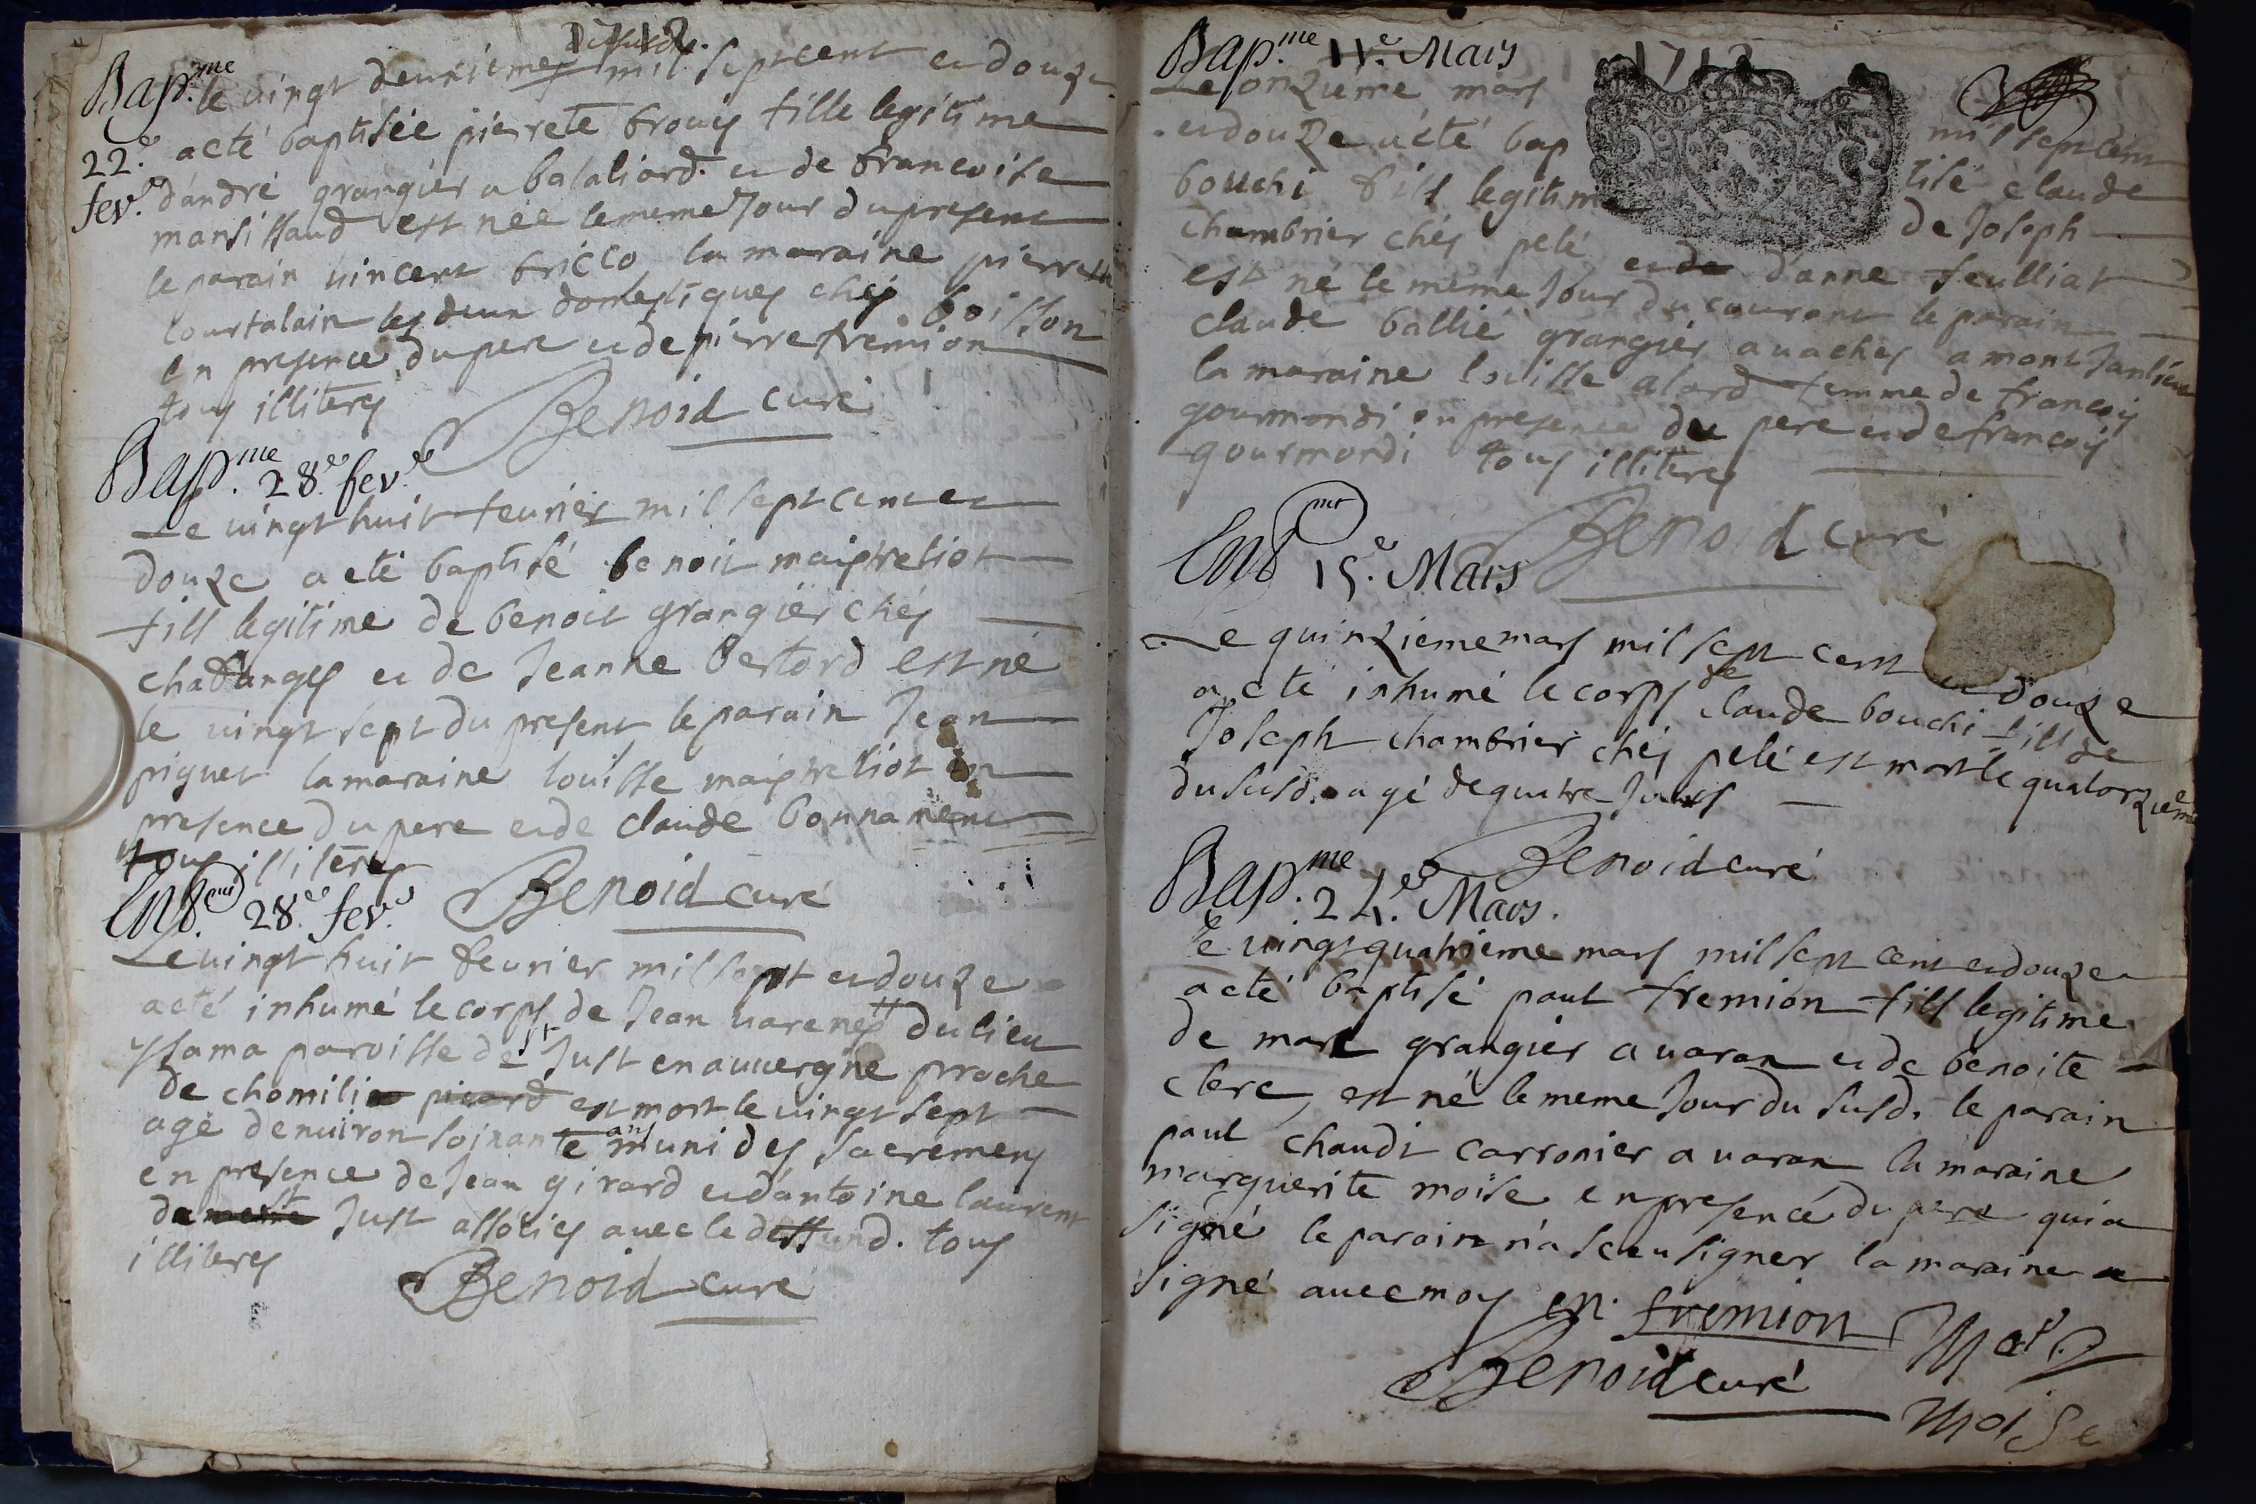 1712.
Bap.me le vingt deuxieme mil sept cent et douze
22.e acté baptisée pierrete brouis fille legitime
fev.e d'andré grangier a balaliard. et de francoise
marsissaud est née le meme Jour du present
le parain vincent bricco la maraine pierrete
Courtalain les deux domestiques chés boisson
en presence du pere et de pierre fremion
tous illiteres
Benoid curé
Bap.me 28.e fev.e
Le vingt huit feurier mil sept cent et
douze a eté baptisé benoit maistreliot
fils legitime de benoit grangier chés
chaffanges et de Jeanne bertord est né
le vingt sept du present le parain Jean
piguet la maraine louisse maistreliot en
presence du pere et de claude bonnament
tous illiteres
Benoid curé
Ent. 28.e fev.e
Le vingt huit feurier mil sept et douze
acté inhumé le corps de Jean varenes du lieu
yssama paroisse de st Just en auuergne proche
de chomili est mort le vingt sept
agé denuiron soinante ans muni des sacremens
en presence de Jean girard et d'antoine laurent
de Just assoties auec le deffund. tous
illiteres
Benoid curé
Bap.me 11.e Mars
1712
Le onzieme mars mil sept cent
et douze acté baptisé claude
bouchi fils legitime de Joseph
chambrier chés pelé et d'anne feulliat
est né le meme Jour du courant le parain
claude ballié grangier a vaches a mont
la maraine louisse alard femme de francois
gourmondi en presence du pere et de francois
gourmondi tous illiteres
Benoid curé
Ent mt 15.e Mars
Le quinzieme mars mil sept cent et douze
a eté inhumé le corps de claude bouchi fils de
Joseph chambrier chés pelé est mort le quatorzieme
du susd. agé de quatre Jours
Benoid curé
Bap.me 24.e Mars.
le vingt quatrieme mars mil sept cent et douze
acté baptisé paul fremion fils legitime
de marc grangier a varan et de benoite
clerc, est né le meme Jour du susd. le parain
paul chaudi carronier a varan la maraine
marguerite moise en presence du pere qui a
signé le parain n'a sceu signer la maraine a
signé auec moy en. fremion
Benoid curé
Moise